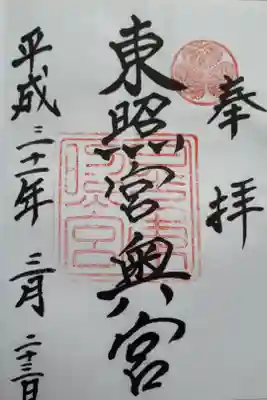 奉拝
東照宮奥宮
平成三十一年三月二十三日